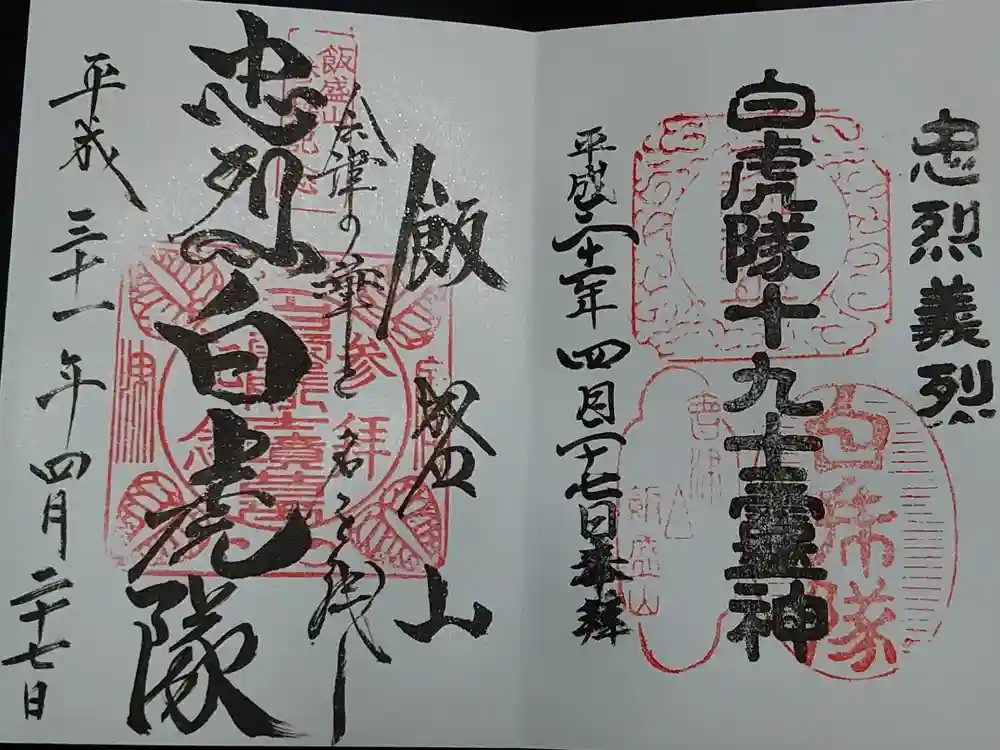 忠烈義烈
白虎隊十九士霊神
平成三十一年四月二十七日奉拝
白虎隊
会津
飯盛山
飯盛山
会津の華と名を残し
忠烈白虎隊
飯盛山
参拝
記念
平成三十一年四月二十七日